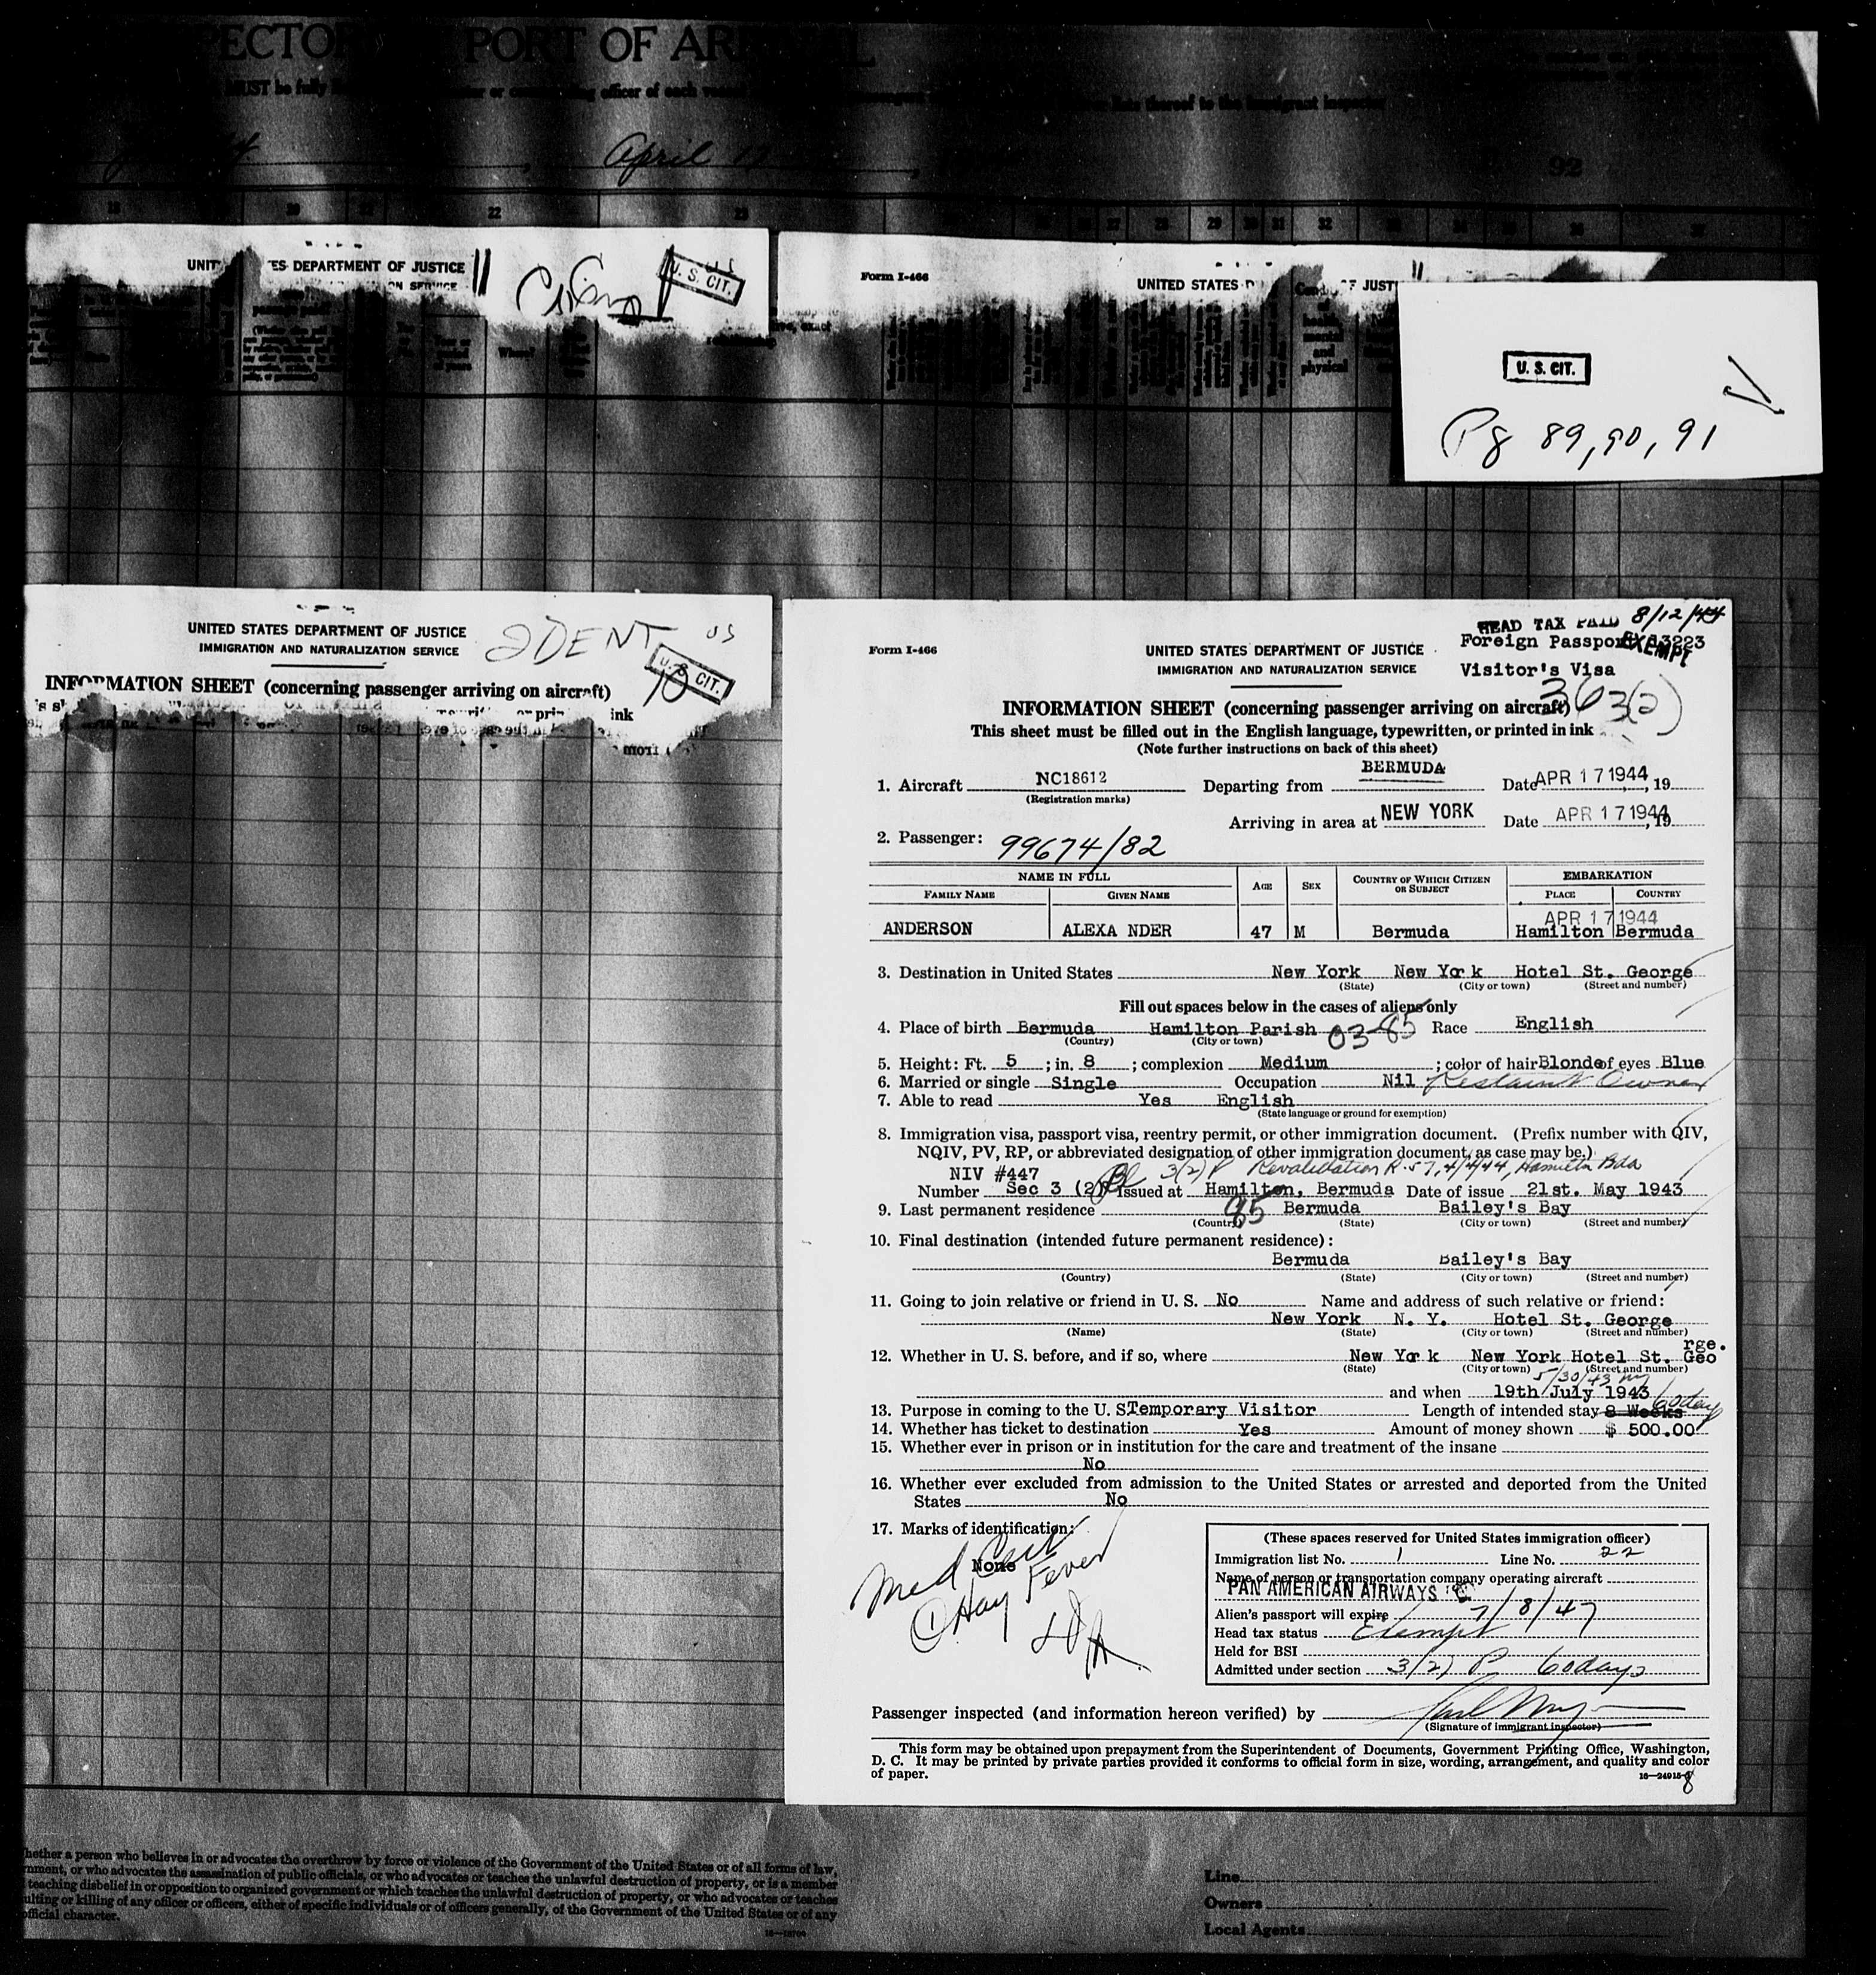 PORT OF
April 17
92
22
29
32
UNIT ES DEPARTMENT OF JUSTICE
U. S. CIT.
Form I-466
UNITED STATES
and
physical
U. S. CIT.
Pg 89, 90, 91
UNITED STATES DEPARTMENT OF JUSTICE
IMMIGRATION AND NATURALIZATION SERVICE
U. S. CIT.
INFORMATION SHEET (concerning passenger arriving on aircraft)
ink
HEAD TAX PAID 8/12/44
Foreign Passport
EXEMPT
Visitor's Visa
3(2)
Form I-466
UNITED STATES DEPARTMENT OF JUSTICE
IMMIGRATION AND NATURALIZATION SERVICE
INFORMATION SHEET (concerning passenger arriving on aircraft)
This sheet must be filled out in the English language, typewritten, or printed in ink
(Note further instructions on back of this sheet)
1. Aircraft NC18612 Departing from BERMUDA Date APR 17 1944, 19
(Registration marks)
Arriving in area at NEW YORK Date APR 17 1944, 19
2. Passenger: 99674/82
NAME IN FULL AGE SEX COUNTRY OF WHICH CITIZEN OR SUBJECT EMBARKATION
FAMILY NAME GIVEN NAME PLACE COUNTRY
APR 17 1944
ANDERSON ALEXA NDER 47 M Bermuda Hamilton Bermuda
3. Destination in United States New York New York Hotel St. George
(State) (City or town) (Street and number)
Fill out spaces below in the cases of aliens only
4. Place of birth Bermuda Hamilton Parish 03-85 Race English
(Country) (City or town)
5. Height: Ft. 5 ; in. 8 ; complexion Medium ; color of hair Blonde of eyes Blue
6. Married or single Single Occupation Nil Restaurant Owner
7. Able to read Yes English
(State language or ground for exemption)
8. Immigration visa, passport visa, reentry permit, or other immigration document. (Prefix number with QIV,
NQIV, PV, RP, or abbreviated designation of other immigration document, as case may be.)
NIV #447 3(2) P Revalidation R-57, 4/4/44, Hamilton Bda
Number Sec 3 (2) Issued at Hamilton, Bermuda Date of issue 21st. May 1943
9. Last permanent residence 85 Bermuda Bailey's Bay
(Country) (State) (City or town) (Street and number)
10. Final destination (intended future permanent residence):
Bermuda Bailey's Bay
(Country) (State) (City or town) (Street and number)
11. Going to join relative or friend in U. S. No Name and address of such relative or friend:
New York N. Y. Hotel St. George
(Name) (State) (City or town) (Street and number)
rge.
12. Whether in U. S. before, and if so, where New York New York Hotel St. Geo
(State) (City or town) (Street and number)
5/30/43 ny
and when 19th July 1943
13. Purpose in coming to the U. S. Temporary Visitor Length of intended stay 8 Weeks 60 days
14. Whether has ticket to destination Yes Amount of money shown $ 500.00
15. Whether ever in prison or in institution for the care and treatment of the insane
No
16. Whether ever excluded from admission to the United States or arrested and deported from the United
States No
17. Marks of identification:
None
Med Cert
① Hay Fever
(These spaces reserved for United States immigration officer)
Immigration list No. 1 Line No. 22
Name of person or transportation company operating aircraft
PAN AMERICAN AIRWAYS
Alien's passport will expire 7/8/47
Head tax status Exempt
Held for BSI
Admitted under section 3(2) P 60 days
Passenger inspected (and information hereon verified) by
(Signature of immigrant inspector)
This form may be obtained upon prepayment from the Superintendent of Documents, Government Printing Office, Washington,
D. C. It may be printed by private parties provided it conforms to official form in size, wording, arrangement, and quality and color
of paper.
hether a person who believes in or advocates the overthrow by force or violence of the Government of the United States or of all forms of law,
nment, or who advocates the assassination of public officials, or who advocates or teaches the unlawful destruction of property, or is a member
teaching disbelief in or opposition to organized government or which teaches the unlawful destruction of property, or who advocates or teaches
ulting or killing of any officer or officers, either of specific individuals or of officers generally, of the Government of the United States or of any
official character.
Line
Owners
Local Agents